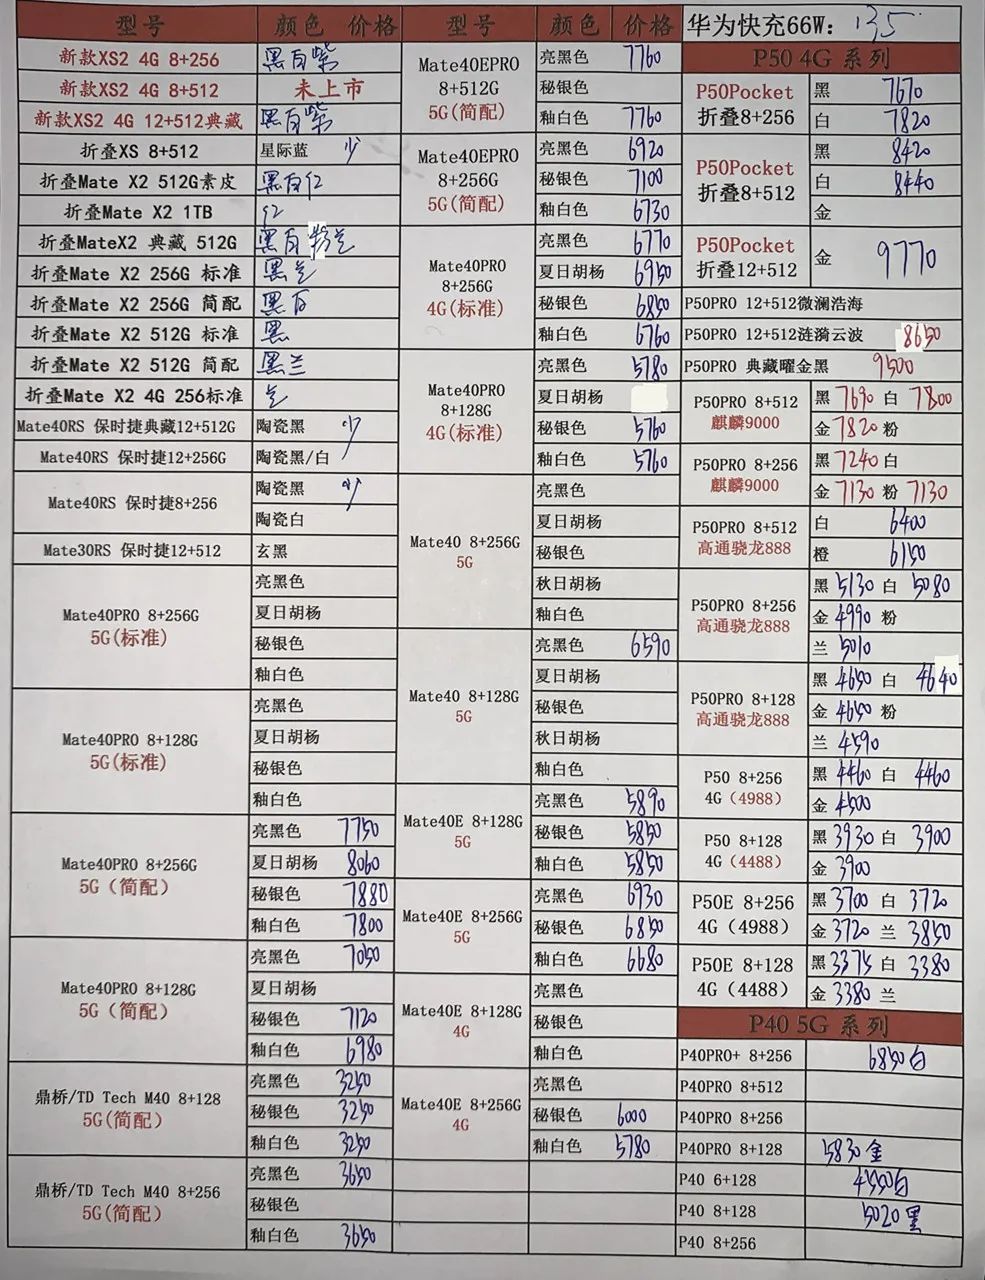 型号 颜色 价格
新款XS2 4G 8+256 黑白紫
新款XS2 4G 8+512 未上市
新款XS2 4G 12+512典藏 黑白紫
折叠XS 8+512 星际蓝 少
折叠Mate X2 512G素皮 黑白红
折叠Mate X2 1TB 红
折叠MateX2 典藏 512G 黑白粉兰
折叠Mate X2 256G 标准 黑兰
折叠Mate X2 256G 简配 黑白
折叠Mate X2 512G 标准 黑
折叠Mate X2 512G 简配 黑兰
折叠Mate X2 4G 256标准 兰
Mate40RS 保时捷典藏12+512G 陶瓷黑 少
Mate40RS 保时捷12+256G 陶瓷黑/白
Mate40RS 保时捷8+256
陶瓷黑 少
陶瓷白
Mate30RS 保时捷12+512 玄黑
Mate40PRO 8+256G
5G(标准)
亮黑色
夏日胡杨
秘银色
釉白色
Mate40PRO 8+128G
5G(标准)
亮黑色
夏日胡杨
秘银色
釉白色
Mate40PRO 8+256G
5G(简配)
亮黑色 7750
夏日胡杨 8060
秘银色 7880
釉白色 7800
Mate40PRO 8+128G
5G(简配)
亮黑色 7050
夏日胡杨
秘银色 7120
釉白色 6980
鼎桥/TD Tech M40 8+128
5G(简配)
亮黑色 3250
秘银色 3250
釉白色 3250
鼎桥/TD Tech M40 8+256
5G(简配)
亮黑色 3650
秘银色
釉白色 3650
型号 颜色 价格
Mate40EPRO
8+512G
5G(简配)
亮黑色 7760
秘银色
釉白色 7760
Mate40EPRO
8+256G
5G(简配)
亮黑色 6920
秘银色 7100
釉白色 6730
Mate40PRO
8+256G
4G(标准)
亮黑色 6770
夏日胡杨 6950
秘银色 6850
釉白色 6760
Mate40PRO
8+128G
4G(标准)
亮黑色 5780
夏日胡杨
秘银色 5760
釉白色 5760
Mate40 8+256G
5G
亮黑色
夏日胡杨
秘银色
秋日胡杨
釉白色
Mate40 8+128G
5G
亮黑色 6590
夏日胡杨
秘银色
秋日胡杨
釉白色
Mate40E 8+128G
5G
亮黑色 5890
秘银色 5850
釉白色 5850
Mate40E 8+256G
5G
亮黑色 6930
秘银色 6850
釉白色 6680
Mate40E 8+128G
4G
亮黑色
秘银色
釉白色
Mate40E 8+256G
4G
亮黑色
秘银色 6000
釉白色 5780
华为快充66W: 135
P50 4G 系列
P50Pocket
折叠8+256
黑 7670
白 7820
P50Pocket
折叠8+512
黑 8420
白 8440
金
P50Pocket
折叠12+512
金 9770
P50PRO 12+512微澜浩海
P50PRO 12+512涟漪云波 8650
P50PRO 典藏曜金黑 9500
P50PRO 8+512
麒麟9000
黑 7690 白 7800
金 7820 粉
P50PRO 8+256
麒麟9000
黑 7240 白
金 7130 粉 7130
P50PRO 8+512
高通骁龙888
白 6400
橙 6150
P50PRO 8+256
高通骁龙888
黑 5130 白 5080
金 4990 粉
兰 5010
P50PRO 8+128
高通骁龙888
黑 4650 白 4640
金 4650 粉
兰 4590
P50 8+256
4G (4988)
黑 4460 白 4460
金 4500
P50 8+128
4G (4488)
黑 3930 白 3900
金 3900
P50E 8+256
4G (4988)
黑 3700 白 3720
金 3720 兰 3850
P50E 8+128
4G (4488)
黑 3375 白 3380
金 3380 兰
P40 5G 系列
P40PRO+ 8+256 6850白
P40PRO 8+512
P40PRO 8+256
P40PRO 8+128 5830金
P40 6+128 4550白
P40 8+128 5020黑
P40 8+256